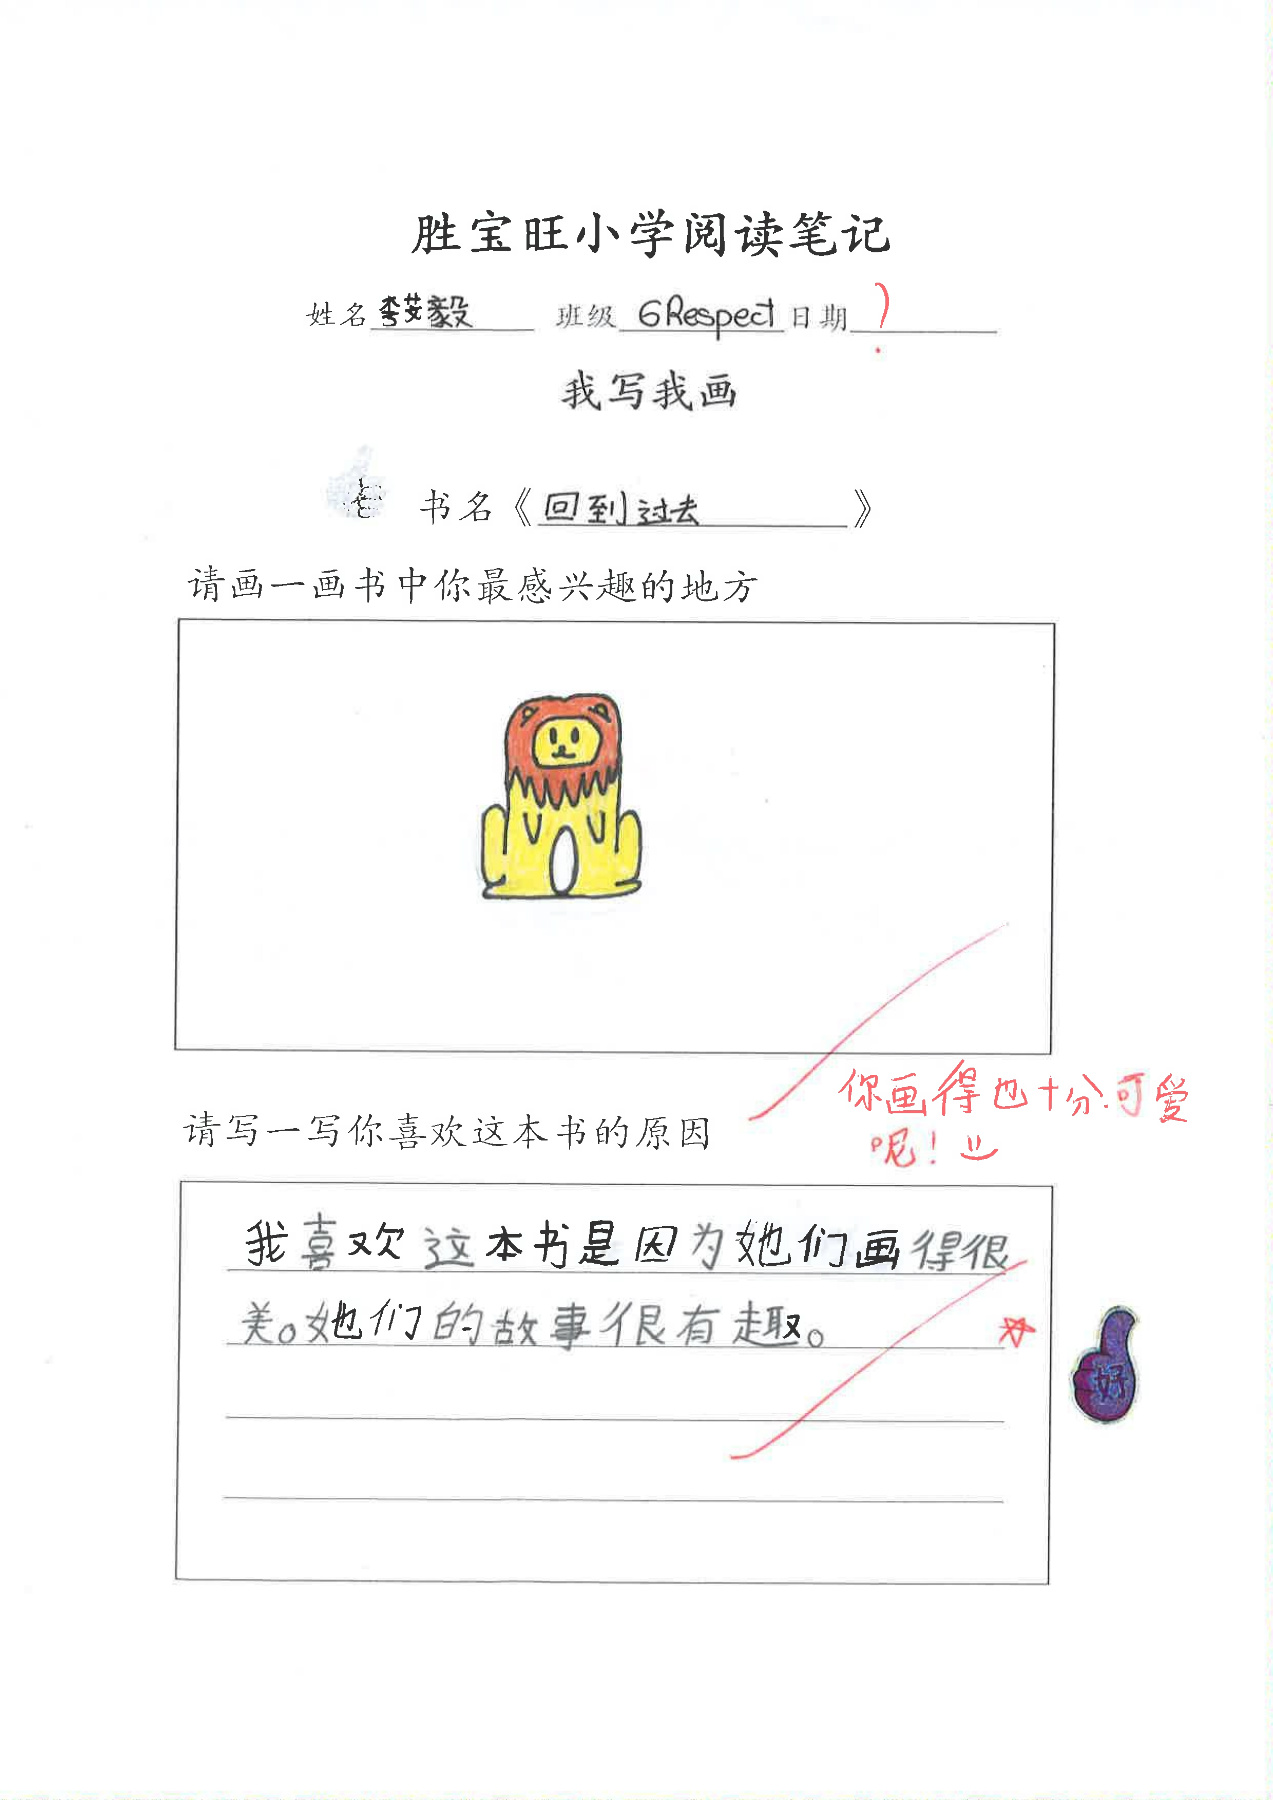 胜宝旺小学阅读笔记
姓名 李艾毅 班级 6Respect 日期 ?
我写我画
书名《回到过去》
请画一画书中你最感兴趣的地方
你画得也十分可爱
呢!
请写一写你喜欢这本书的原因
我喜欢这本书是因为她们画得很
美。她们的故事很有趣。
好